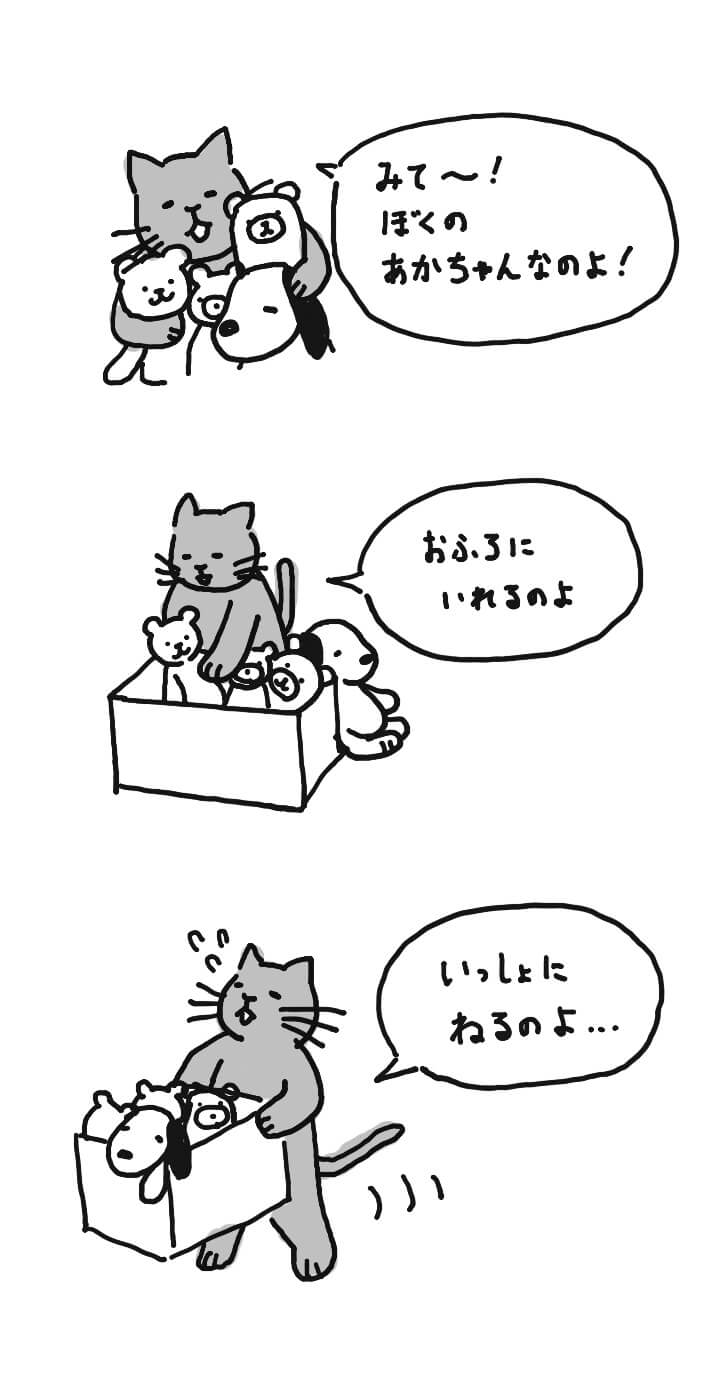 みて～！
ぼくの
あかちゃんなのよ！
おふろに
いれるのよ
いっしょに
ねるのよ...